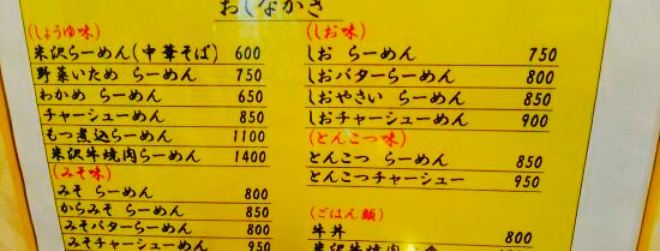 おしながき
(しょうゆ味)
米沢らーめん(中華そば) 600
野菜いため らーめん 750
わかめ らーめん 650
チャーシューめん 850
もつ煮込らーめん 1100
米沢牛焼肉らーめん 1400
(みそ味)
みそ らーめん 800
からみそ らーめん 850
みそバターらーめん 900
みそチャーシューめん 950
(しお味)
しお らーめん 750
しおバターらーめん 800
しおやさい らーめん 850
しおチャーシューめん 900
(とんこつ味)
とんこつ らーめん 850
とんこつチャーシュー 950
(ごはん類)
牛丼 800
米沢牛焼肉